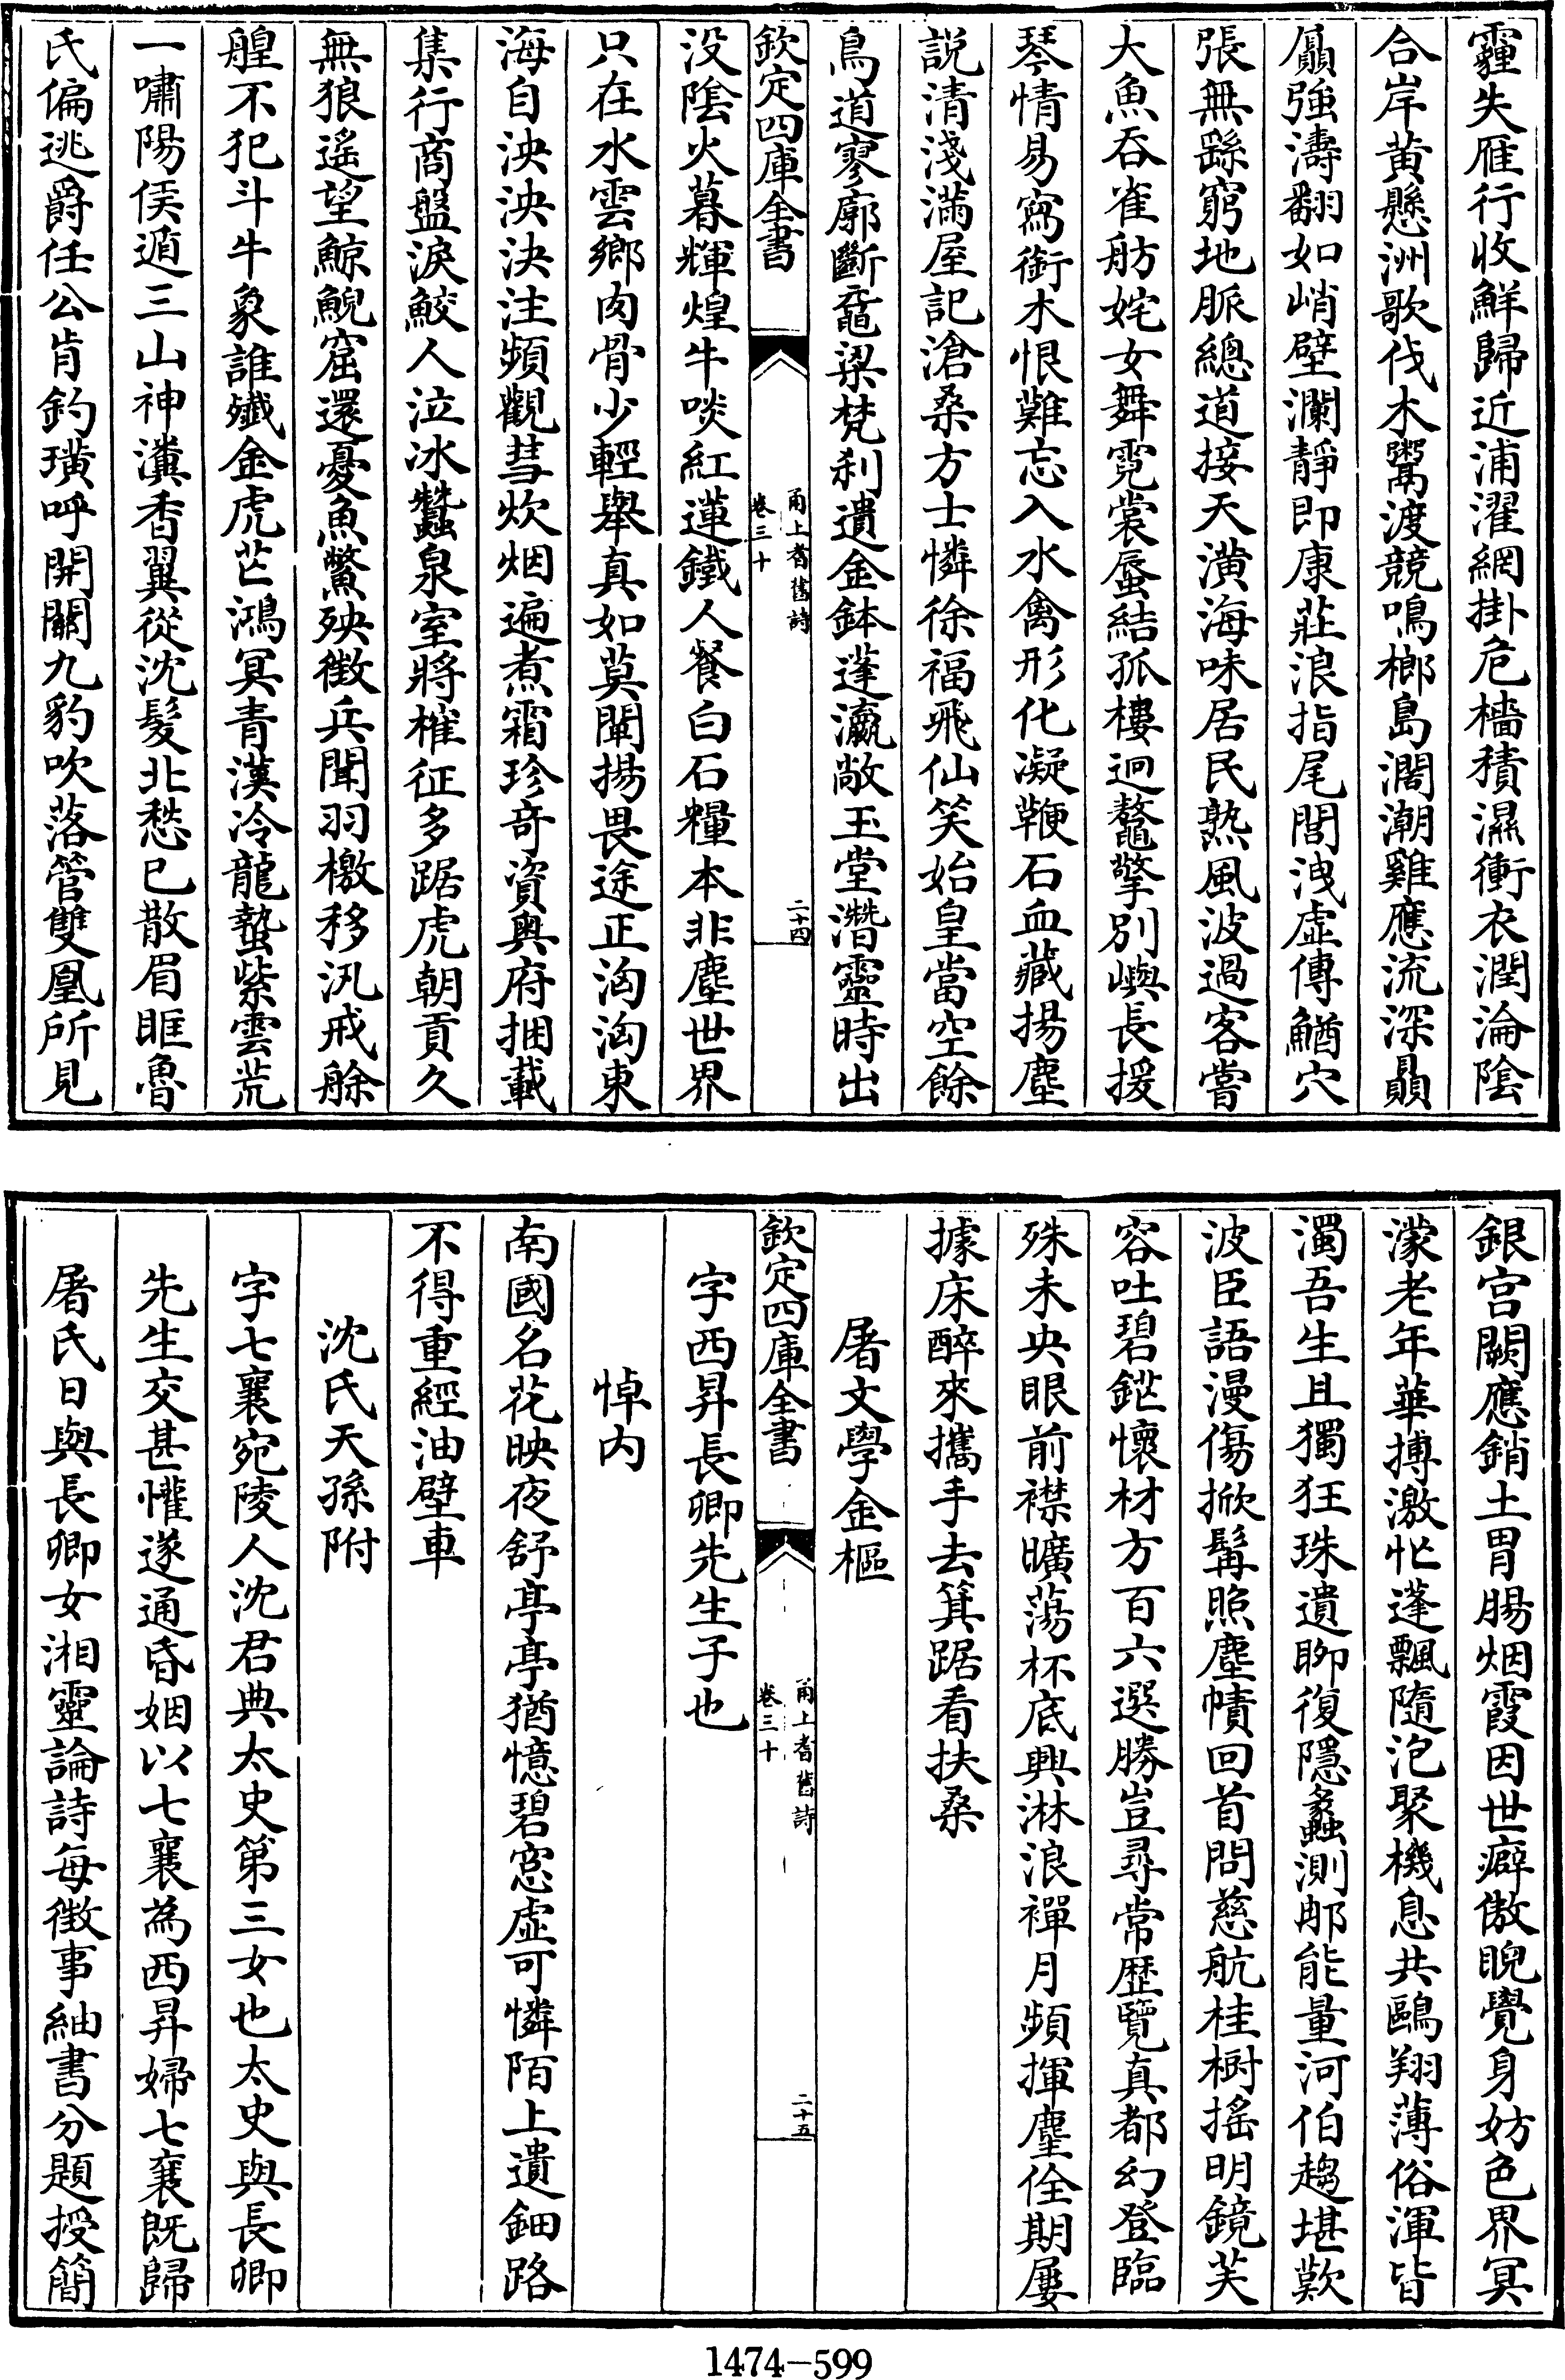 霾失雁行收鮮歸近浦濯網掛危檣積濕衝衣潤淪陰
合岸黄懸洲歌伐木鬻渡競鳴榔島濶潮雞應流深贔
屭強濤翻如峭壁瀾靜即康莊浪指尾閭洩虚傳鰌穴
張無繇窮地脈總道接天潢海味居民熟風波過客嘗
大魚吞雀舫姹女舞霓裳蜃結孤樓迥鼇擎別嶼長援
琴情易寫銜木恨難忘入水禽形化凝鞭石血藏揚塵
説清淺滿屋記滄桑方士憐徐福飛仙笑始皇當空餘
鳥道寥廓斷黿梁梵刹遺金鉢蓬瀛敞玉堂潛靈時出
欽定四庫全書
甬上耆舊詩
卷三十
二十四
没陰火暮輝煌牛啖紅蓮鐵人餐白石糧本非塵世界
只在水雲鄉肉骨少輕舉真如莫闡揚畏途正洶洶東
海自泱泱決注頻觀彗炊烟遍煮霜珍奇資奥府捆載
集行商盤淚鮫人泣冰蠶泉室將榷征多踞虎朝貢久
無狼遥望鯨鯢窟還憂魚鱉殃徴兵聞羽檄移汛戒艅
艎不犯斗牛象誰殲金虎芒鴻冥青漢冷龍蟄紫雲荒
一嘯陽侯遁三山神瀵香翼從沈髮北愁已散眉眶魯
氏偏逃爵任公肯釣璜呼開關九豹吹落管雙凰所見
銀宫闕應銷土胃腸烟霞因世癖傲睨覺身妨色界冥
濛老年華搏激忙蓬飄隨泡聚機息共鷗翔薄俗渾皆
濁吾生且獨狂珠遺聊復隱蠡測那能量河伯趨堪歎
波臣語漫傷掀髯照塵幘回首問慈航桂樹摇明鏡芙
容吐碧鋩懷材方百六選勝豈尋常歴覽真都幻登臨
殊未央眼前襟曠蕩杯底興淋浪禪月頻揮麈佺期屢
據床醉來攜手去箕踞看扶桑
屠文學金樞
欽定四庫全書
甬上耆舊詩
卷三十
二十五
字西昇長卿先生子也
悼内
南國名花映夜舒亭亭猶憶碧窓虚可憐陌上遺鈿路
不得重經油壁車
沈氏天孫附
字七襄宛陵人沈君典太史第三女也太史與長卿
先生交甚懽遂通昏姻以七襄為西昇婦七襄既歸
屠氏日與長卿女湘靈論詩每徴事紬書分題授簡
1474-599